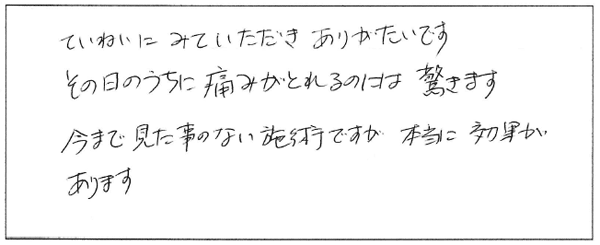 ていねいに みていただき ありがたいです
その日のうちに 痛みがとれるのには 驚きます
今まで見た事のない施術ですが 本当に 効果が
あります